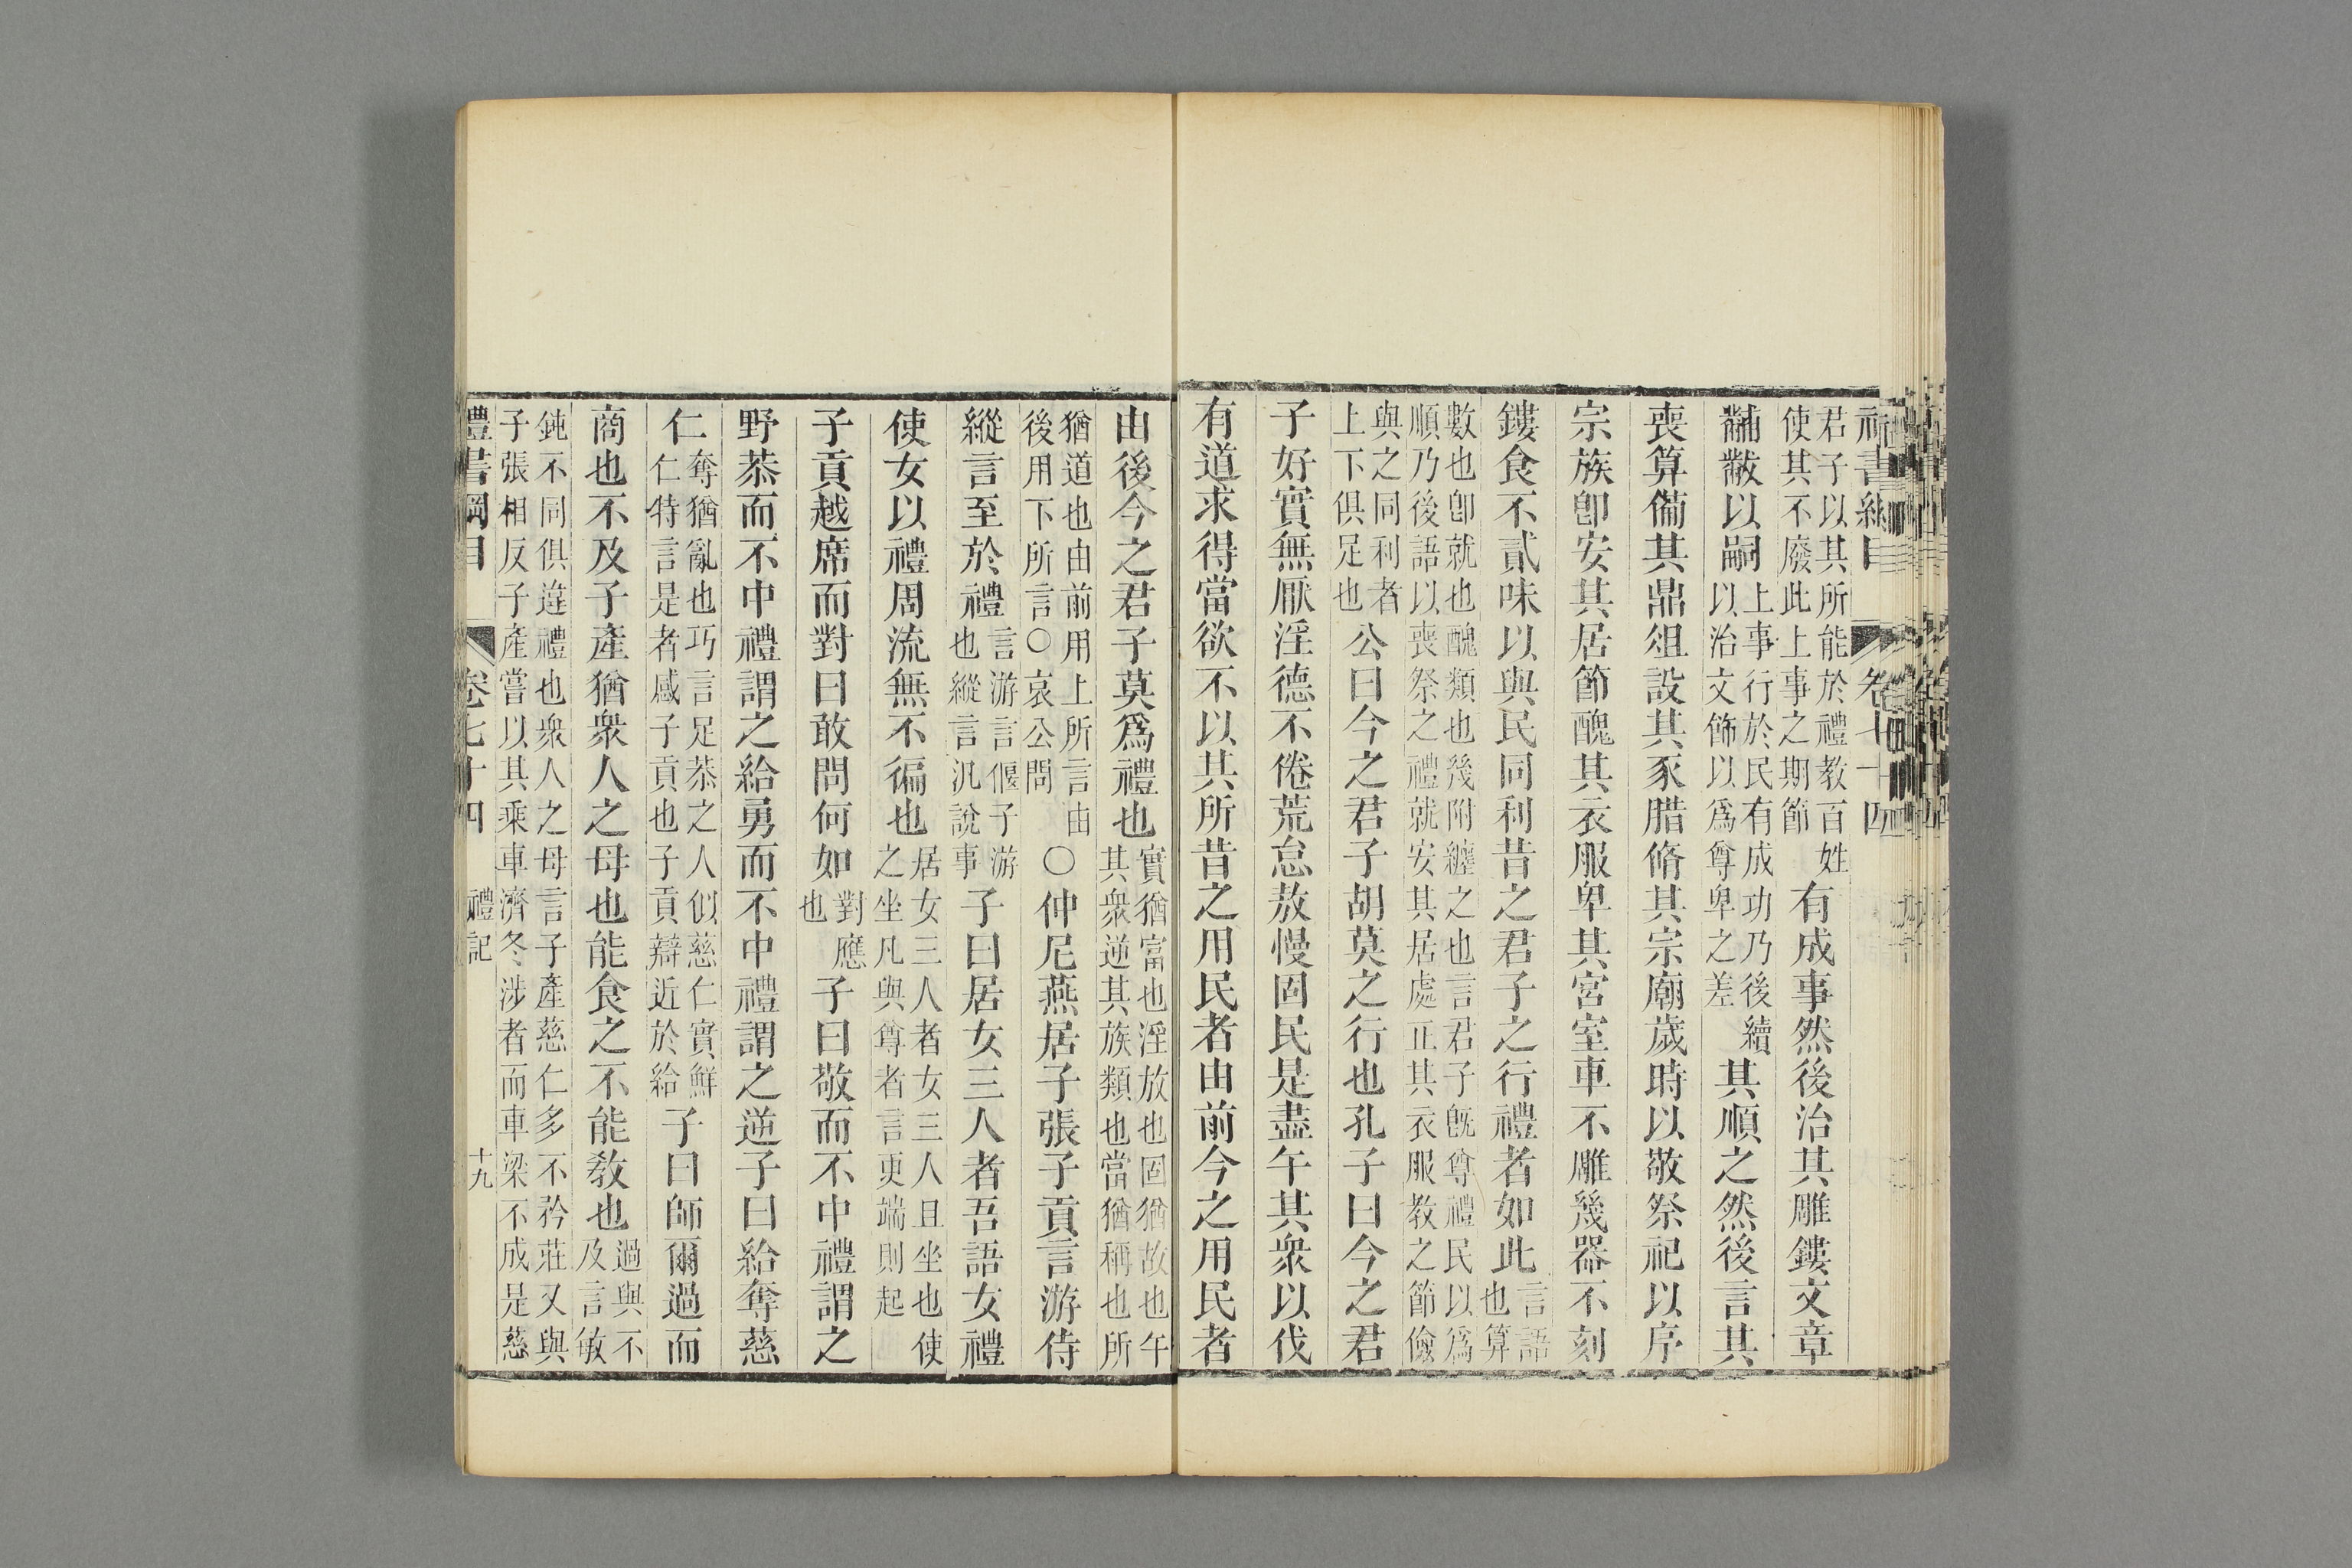 君子以其所能於禮教百姓使其不廢此上事之期節有成事然後治其雕鏤文章
黼黻以嗣上事行於民有成功乃後續以治文飾以爲尊卑之差其順之然後言其
喪算備其鼎俎設其豕腊脩其宗廟歲時以敬祭祀以序
宗族卽安其居節醜其衣服卑其宮室車不雕幾器不刻
鏤食不貳味以與民同利昔之君子之行禮者如此言語也算
數也卽就也醜類也幾附纏之也言君子旣尊禮民以爲順乃後語以喪祭之禮就安其居處正其衣服教之節儉
與之同利者上下俱足也公曰今之君子胡莫之行也孔子曰今之君
子好實無厭淫德不倦荒怠敖慢固民是盡午其衆以伐
有道求得當欲不以其所昔之用民者由前今之用民者
由後今之君子莫爲禮也實猶富也淫放也固猶故也午其衆逆其族類也當猶稱也所
猶道也由前用上所言由後用下所言○哀公問○仲尼燕居子張子貢言游侍
縱言至於禮言游言偃子游也縱言汎說事子曰居女三人者吾語女禮
使女以禮周流無不徧也居女三人者女三人且坐也使之坐凡與尊者言更端則起
子貢越席而對曰敢問何如對應也子曰敬而不中禮謂之
野恭而不中禮謂之給勇而不中禮謂之逆子曰給奪慈
仁奪猶亂也巧言足恭之人似慈仁實鮮仁特言是者感子貢也子貢辯近於給子曰師爾過而
商也不及子產猶衆人之母也能食之不能敎也過與不及言敏
鈍不同俱違禮也衆人之母言子產慈仁多不矜莊又與子張相反子產嘗以其乘車濟冬涉者而車梁不成是慈
禮書綱目 卷七十四 禮記 十九